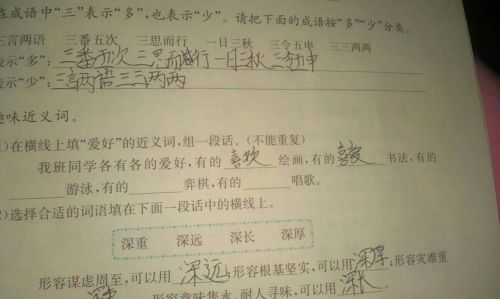 在成语中“三”表示“多”,也表示“少”。请把下面的成语按“多”“少”分类。
三言两语 三番五次 三思而行 一日三秋 三令五申 三三两两
表示“多”: 三番五次 三思而行 一日三秋 三令五申
表示“少”: 三言两语 三三两两
趣味近义词。
1)在横线上填“爱好”的近义词,组一段话。(不能重复)
我班同学各有各的爱好,有的 喜欢 绘画,有的 喜爱 书法,有的
游泳,有的 弈棋,有的 唱歌。
2)选择合适的词语填在下面一段话中的横线上。
深重 深远 深长 深厚
形容谋虑周至,可以用 深远;形容根基坚实,可以用 深厚;形容灾难重
深重 形容意味隽永、耐人寻味,可以用 深长。